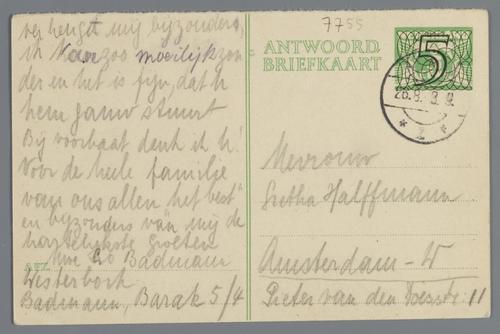 verheugt mij bijzonders,
ik kan zoo moeilijk zon
der en het is fijn, dat U
hem gauw stuurt
Bij voorbaat dank ik U!
Voor de heele familie
van ons allen het beste
en bijzonders van mij de
hartelijkste groeten
Uw Badmann
AFZ.
Westerbork
Badmann, Barak 5/4
7755
ANTWOORD
BRIEFKAART
5
26.8. 3.
* 2 *
Mevrouw
Gretha Halffmann
Amsterdam-W
Pieter van den 11